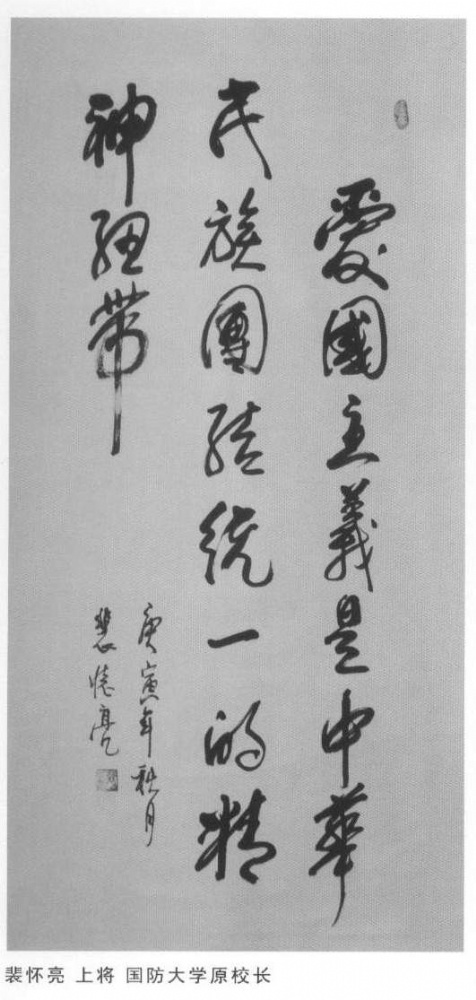 愛國主義是中華
民族團結統一的精
神紐帶
庚寅年秋月
裴懷亮
裴怀亮 上将 国防大学原校长